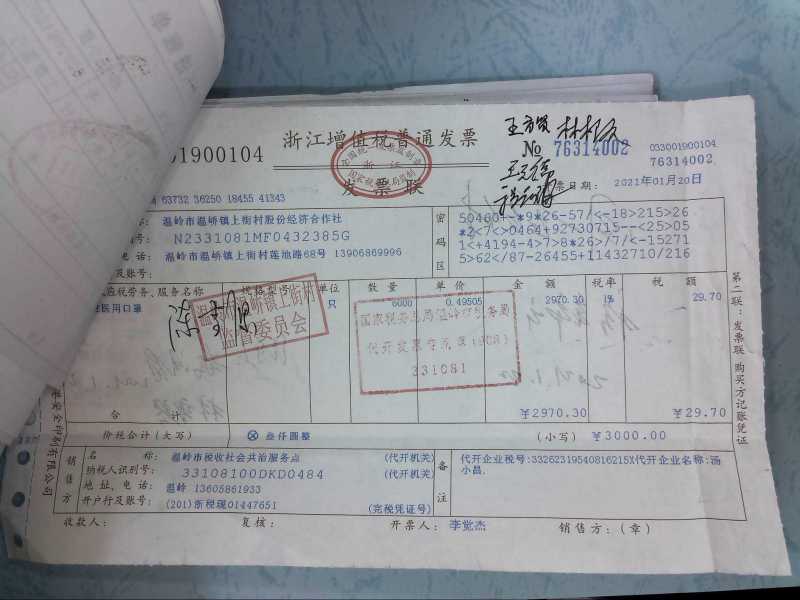 浙江增值税普通发票
01900104
No 76314002
033001900104
76314002
全国统一发票监制章
浙江
国家税务总局监制
发票联
票日期: 2021年01月20日
63732 36250 18455 41343
称: 温岭市温峤镇上街村股份经济合作社
号: N2331081MF0432385G
电话: 温岭市温峤镇上街村莲池路68号 13906869996
及账号:
密码区
50460+-*9*26-57/<-18>215>26
*2<7<>0464+92730715--<25>05
1<+4194-4>7>8*26>/7/<-15271
5>62</87-26455+11432710/216
应税劳务、服务名称 规格型号 单位 数量 单价 金额 税率 税额
医用口罩 只 6000 0.49505 2970.30 1% 29.70
温岭市温峤镇上街村
监督委员会
代开发票专用章
331081
合计 ¥2970.30 ¥29.70
价税合计(大写) ⊗ 叁仟圆整 (小写) ¥3000.00
销售方
名称: 温岭市税收社会共治服务点 (代开机关)
纳税人识别号: 33108100DKD0484 (代开机关)
地址、电话: 温岭 13605861933
开户行及账号: (201)浙税现01447651 (完税凭证号)
备注
代开企业税号:33262319540816215X代开企业名称:汤
小昌
收款人: 复核: 开票人: 李觉杰 销售方:(章)
第二联:发票联 购买方记账凭证